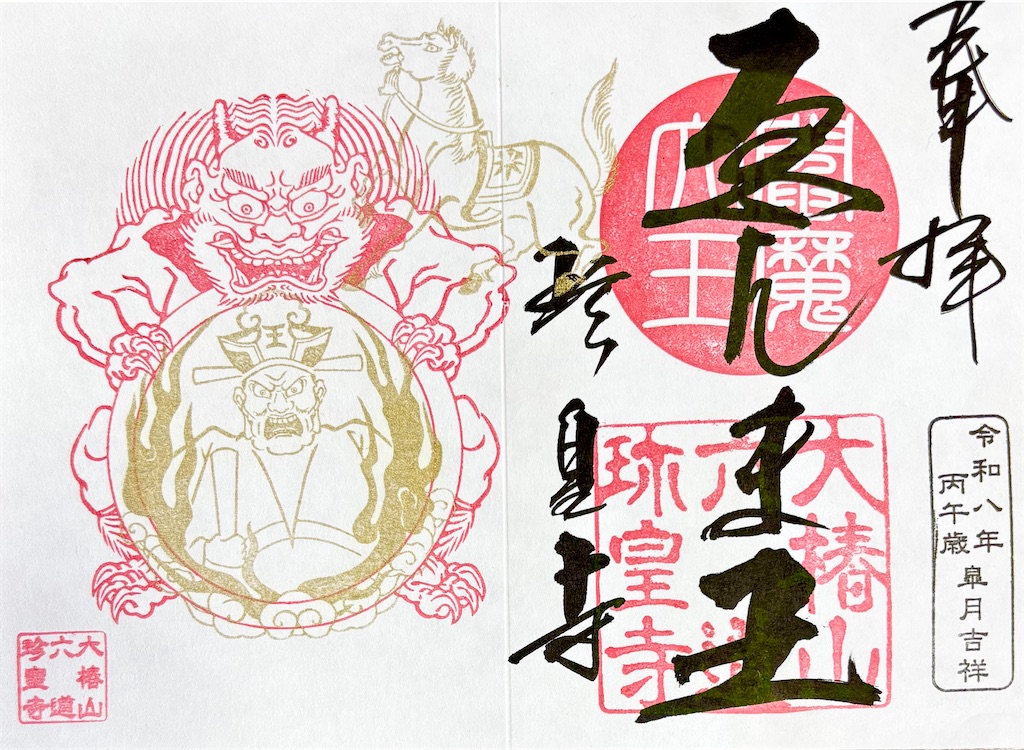 奉拝
令和八年
丙午歳
皐月吉祥
閻魔
大王
ゑんま王
大椿山
六道
珎皇寺
珍皇寺
王
大椿山
六道
珍皇寺